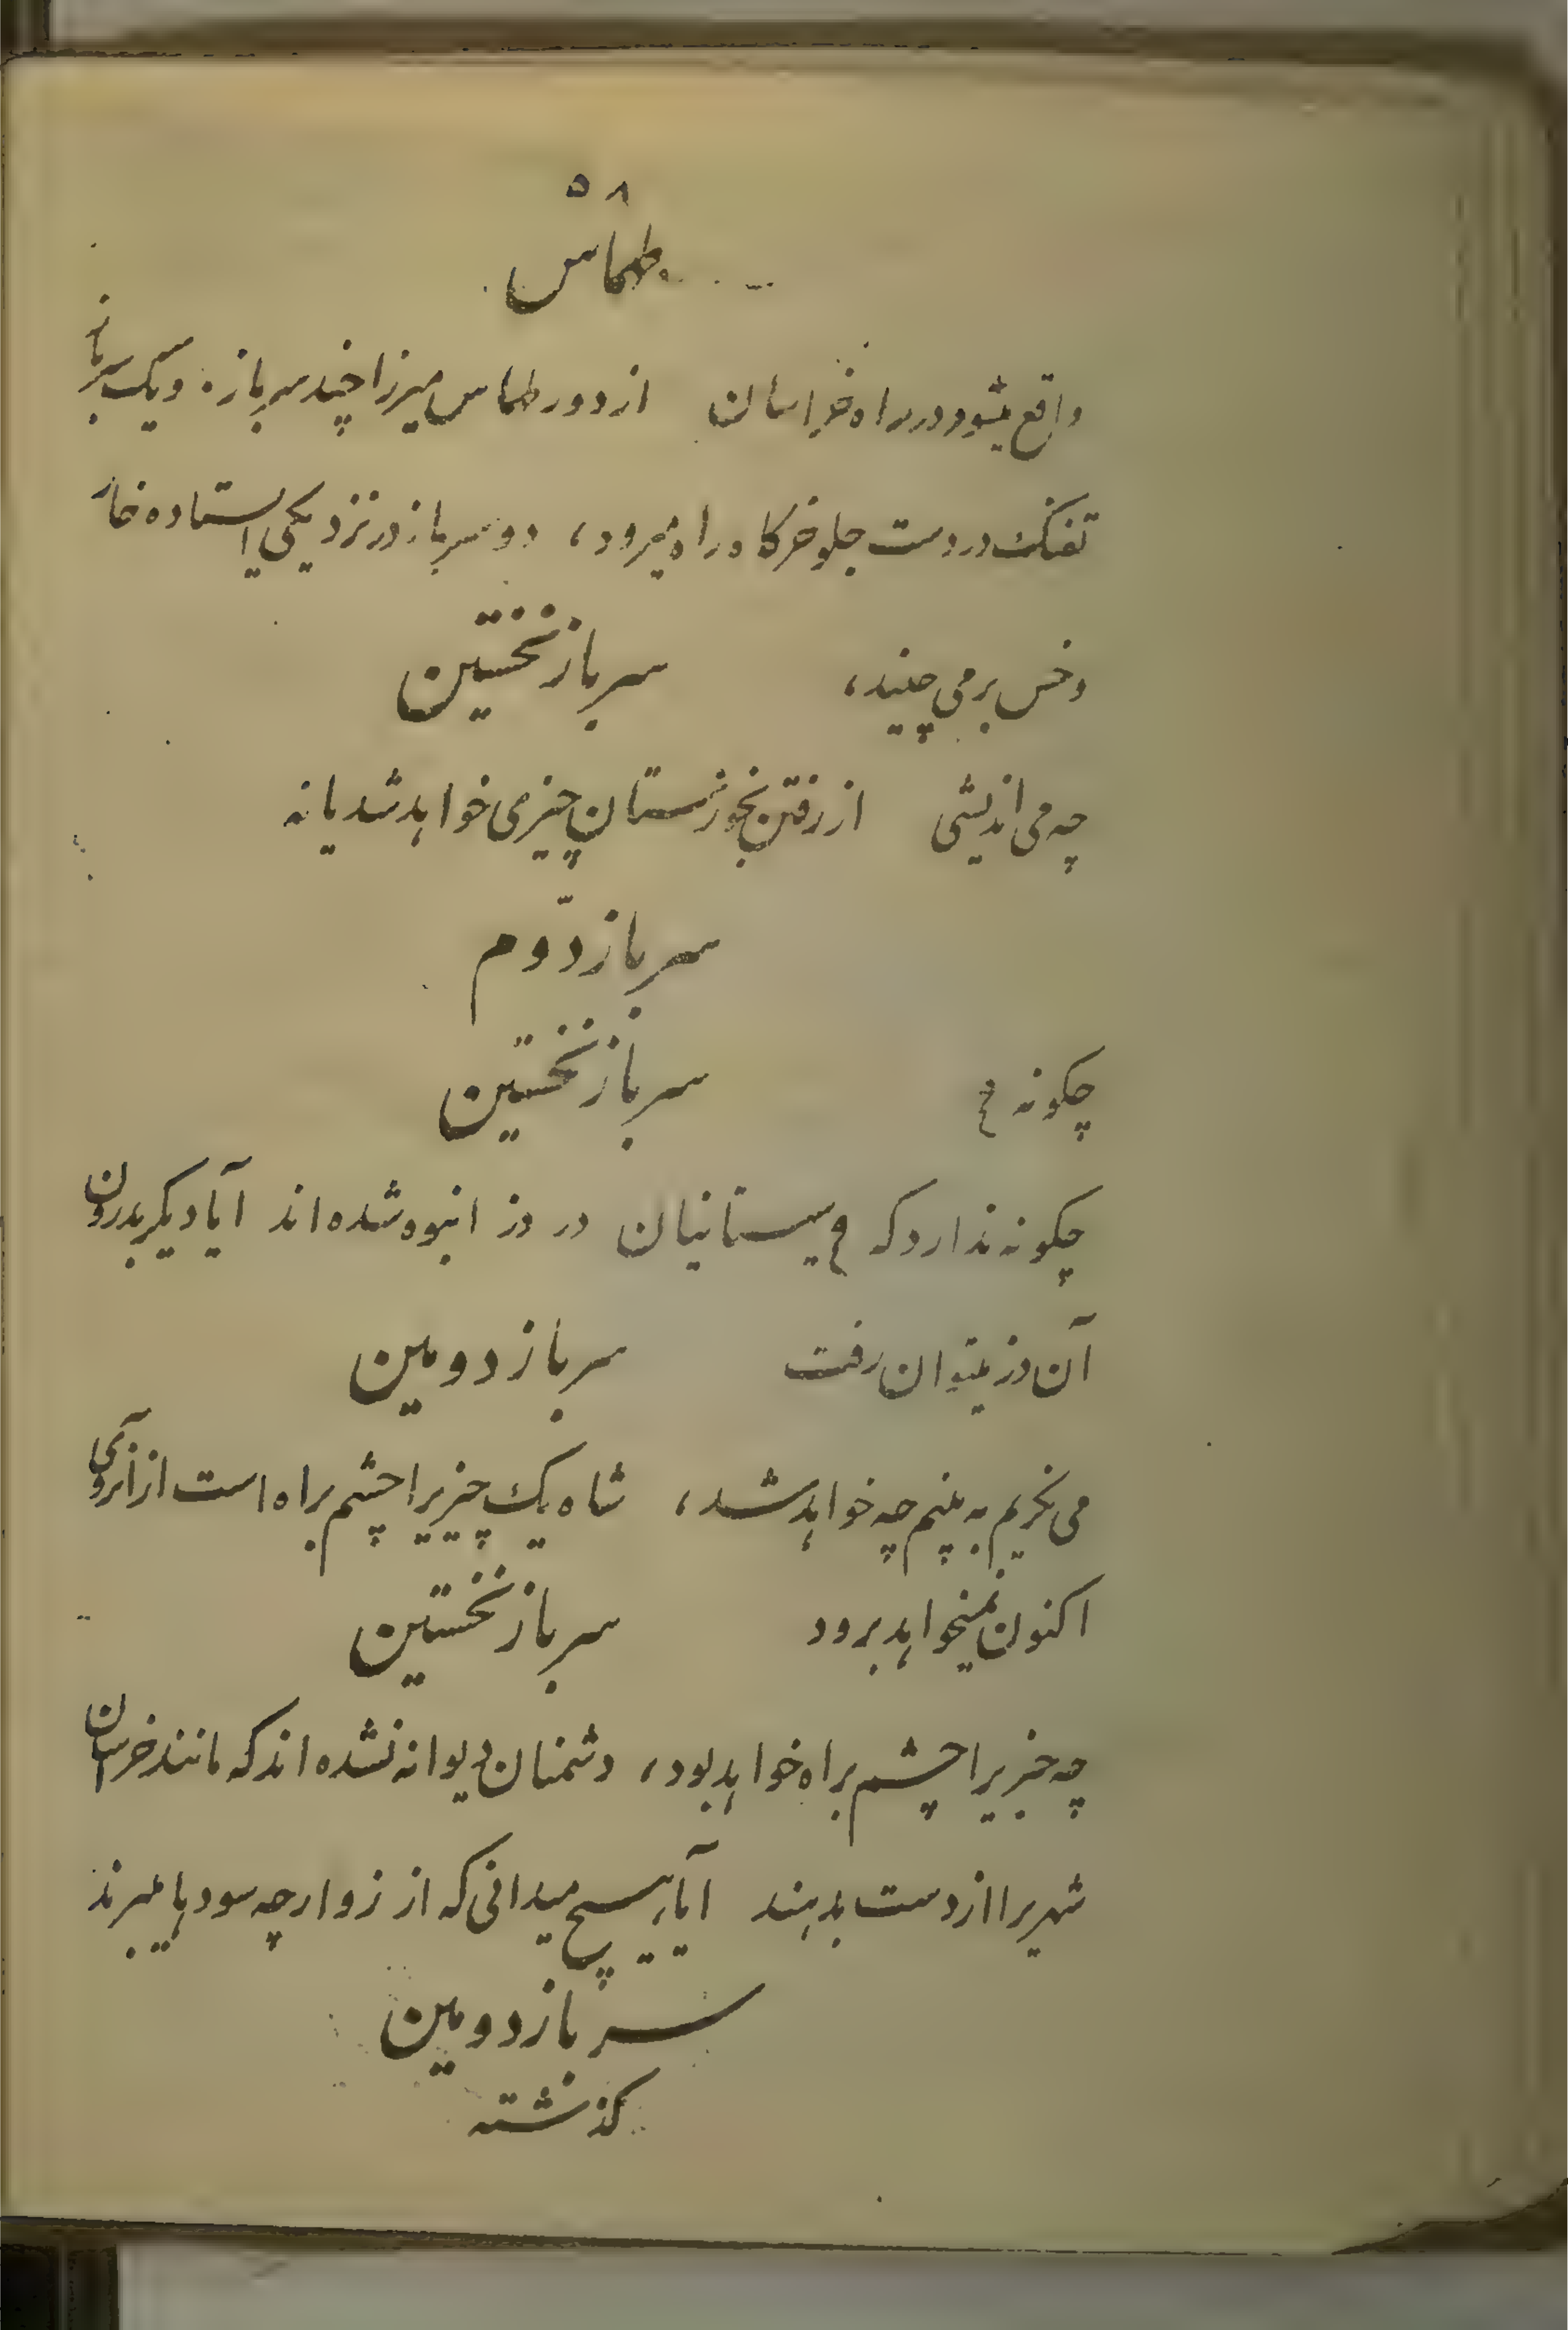 ۵۸
طهماس
واقع میشود در راه خراسان از دور طهماس میرزا چند سرباز. ویک سرباز
تفنک در دست جلو خرکاه راه میرود، دو سرباز در نزدیکی ایستاده خار
وخس برمی چینید، سرباز نخستین
چه می اندیشی از رفتن بخوزستان چیزمی خواهد شد یا نه
سرباز دوّم
چکونه ؟ سرباز نخستین
چکونه ندارد که سیستانیان در دز انبوه شده اند آیا دیکر بدرون
آن دز میتوان رفت سرباز دومین
می نکریم به بینم چه خواهد شد، شاه یک چیزیرا چشم براه است از آنروی
اکنون نمیخواهد برود سرباز نخستین
چه چیزیرا چشم براه خواهد بود، دشمنان دیوانه نشده اند که مانند خرسان
شهریرا از دست بدهند آیا هیچ میدانی که از زوار چه سودها میبرند
سرباز دومین
کذشته